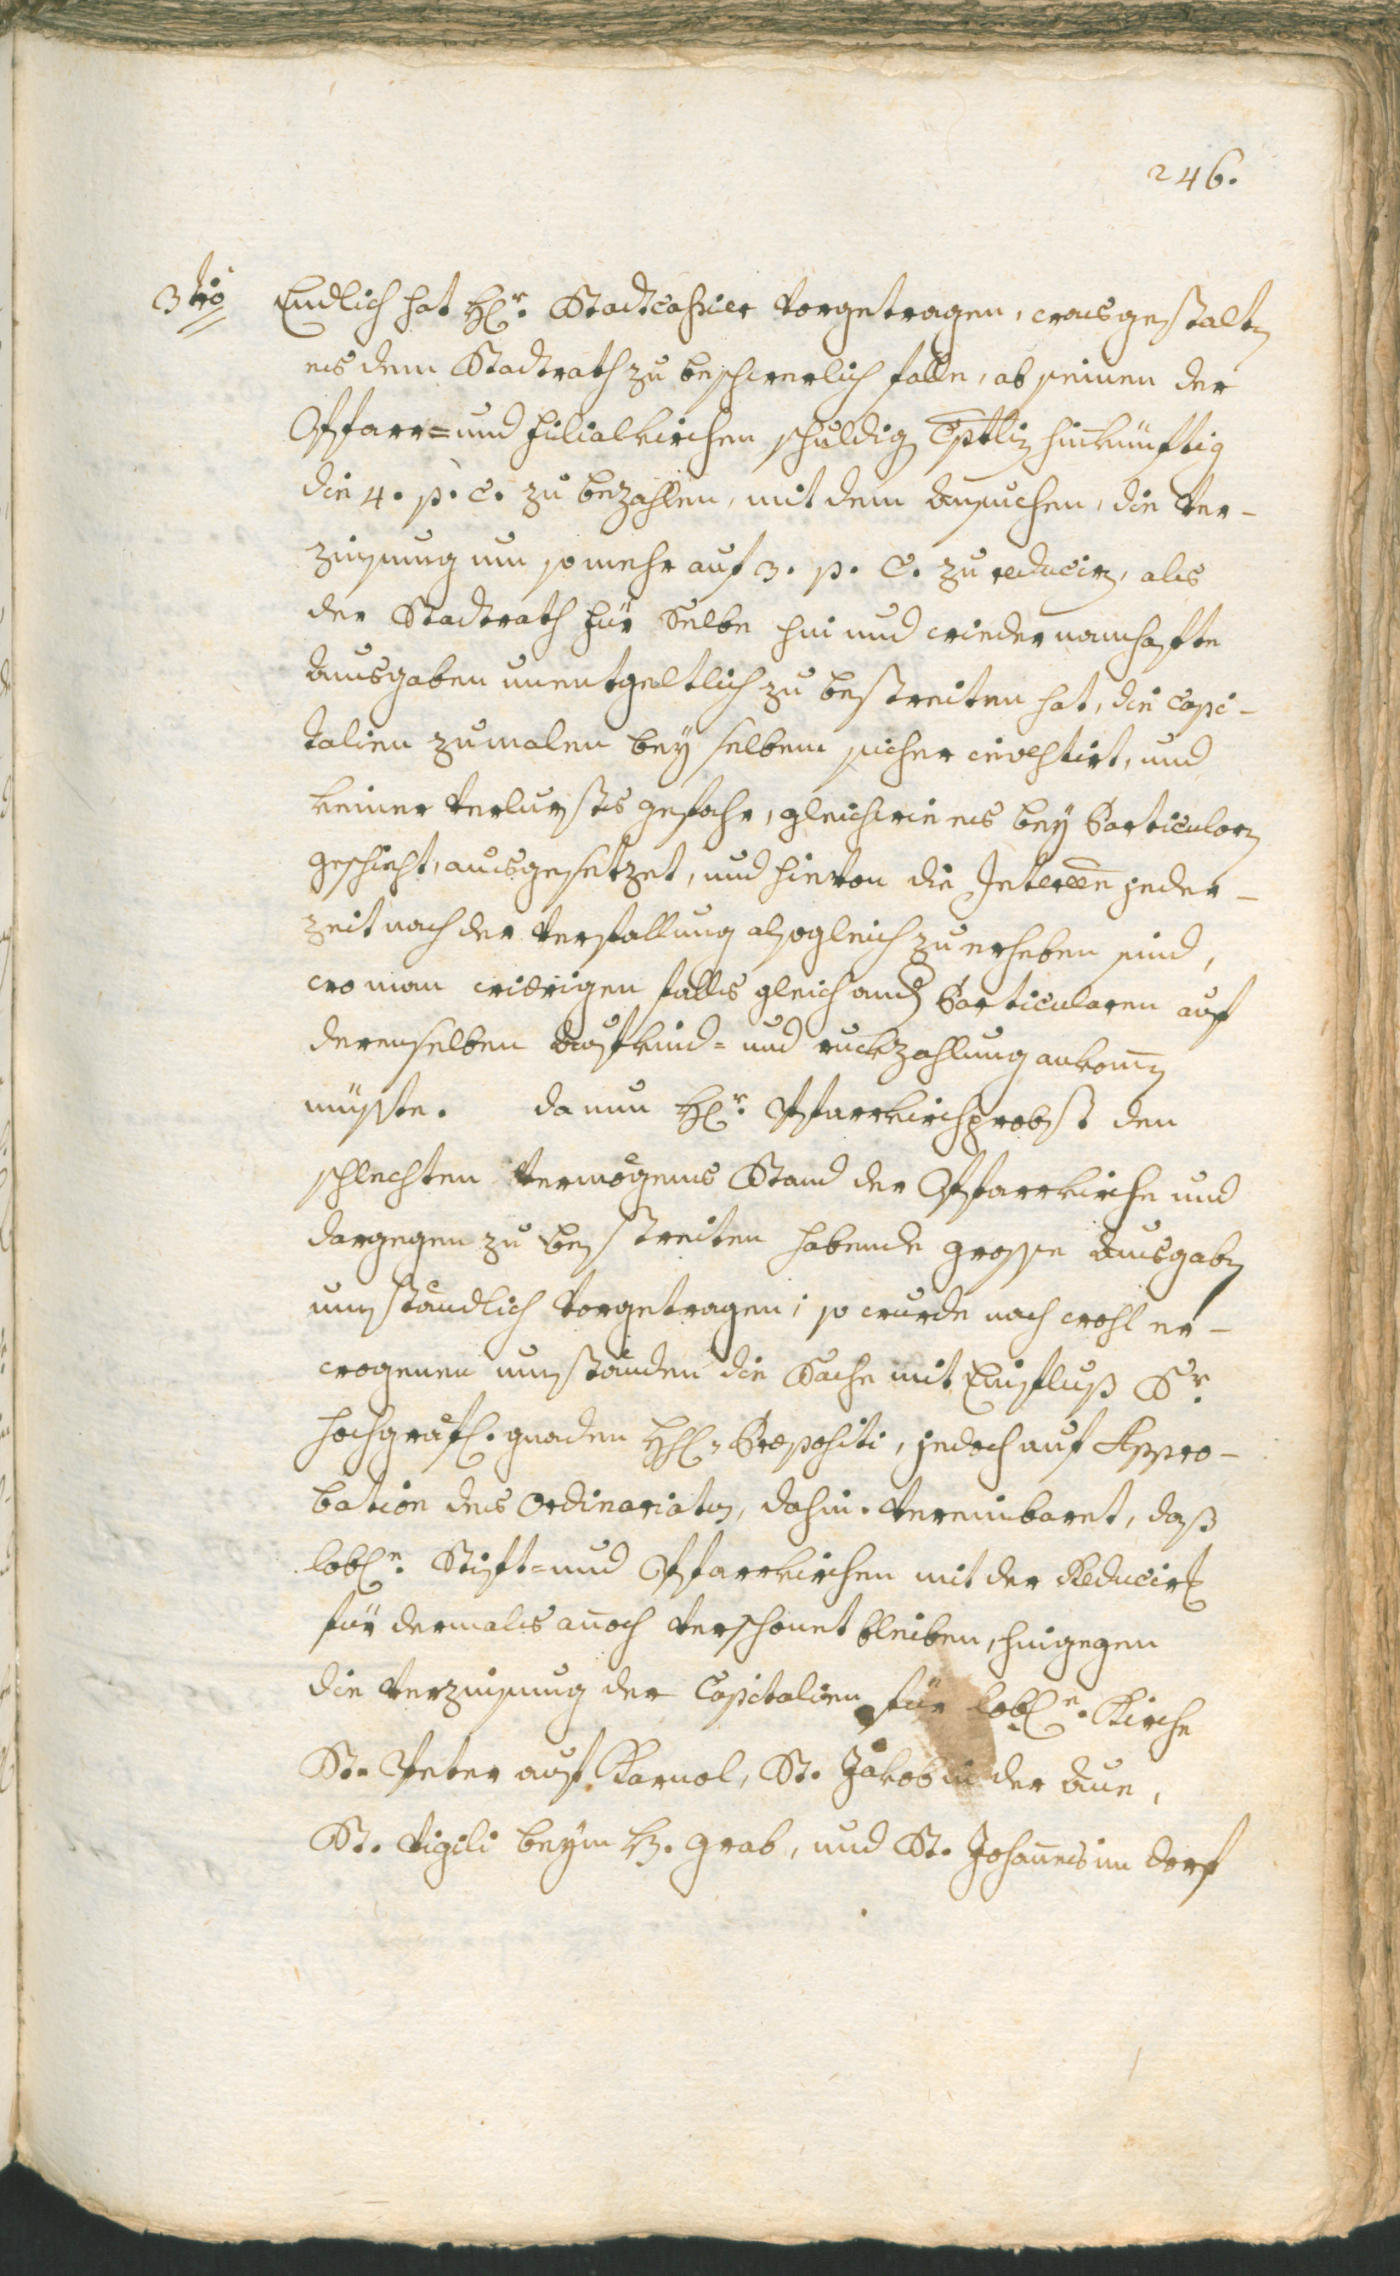 246.
3tiò Endlich hat H(err). Stadtcassier vorgetragen, wasgestaltn
es dem Stadtrath zu beschwerlich falle, ab seinen der
Pfarr= und Filialkirchen schuldign Cptlin hinkünftig
die 4. p. C. zu bezahlen, mit dem Ansuchen, die Ver-
zinsung um so mehr auf 3. p. C. zu reducirn, als
der Stadtrath für Selbe hin und wieder namhafte
Ausgaben unentgeltlich zu bestreiten hat, die Capi-
talien zumalen bey selbem sicher investirt, und
keiner Verlursts gefahr, gleichwie es bey Particularn
geschieht, ausgesetzet, und hievon die Interessen jeder-
zeit nach der Verfallung alsogleich zu erheben sind,
wo man widrigen falls gleich andn Particularen auf
derenselben Aufkünd= und ruckzahlung ankomen
müsste. Da nun Hr. Pfarrkirchprobst den
schlechten Vermögens Stand der Pfarrkirche und
dargegen zu bestreiten habende grosse Ausgabn
umständlich vorgetragen; so wurde nach wohl er-
wogenen umständen die Sache mit Einfluß Sr.
hochgräfl. gnaden HH. Præpositi, jedoch auf Appro-
bation des Ordinariats, dahin vereinbaret, daß
lobl. Stift= und Pfarrkirchen mit der Reducirg
für dermals anoch verschonet bleiben, hingegen
die Verzinsung der Capitalien für lobl. Kirche
St. Peter auf Karnol, St. Jakob in der Aue,
St. Vigili beym H. Grab, und St. Johannes im Dorf